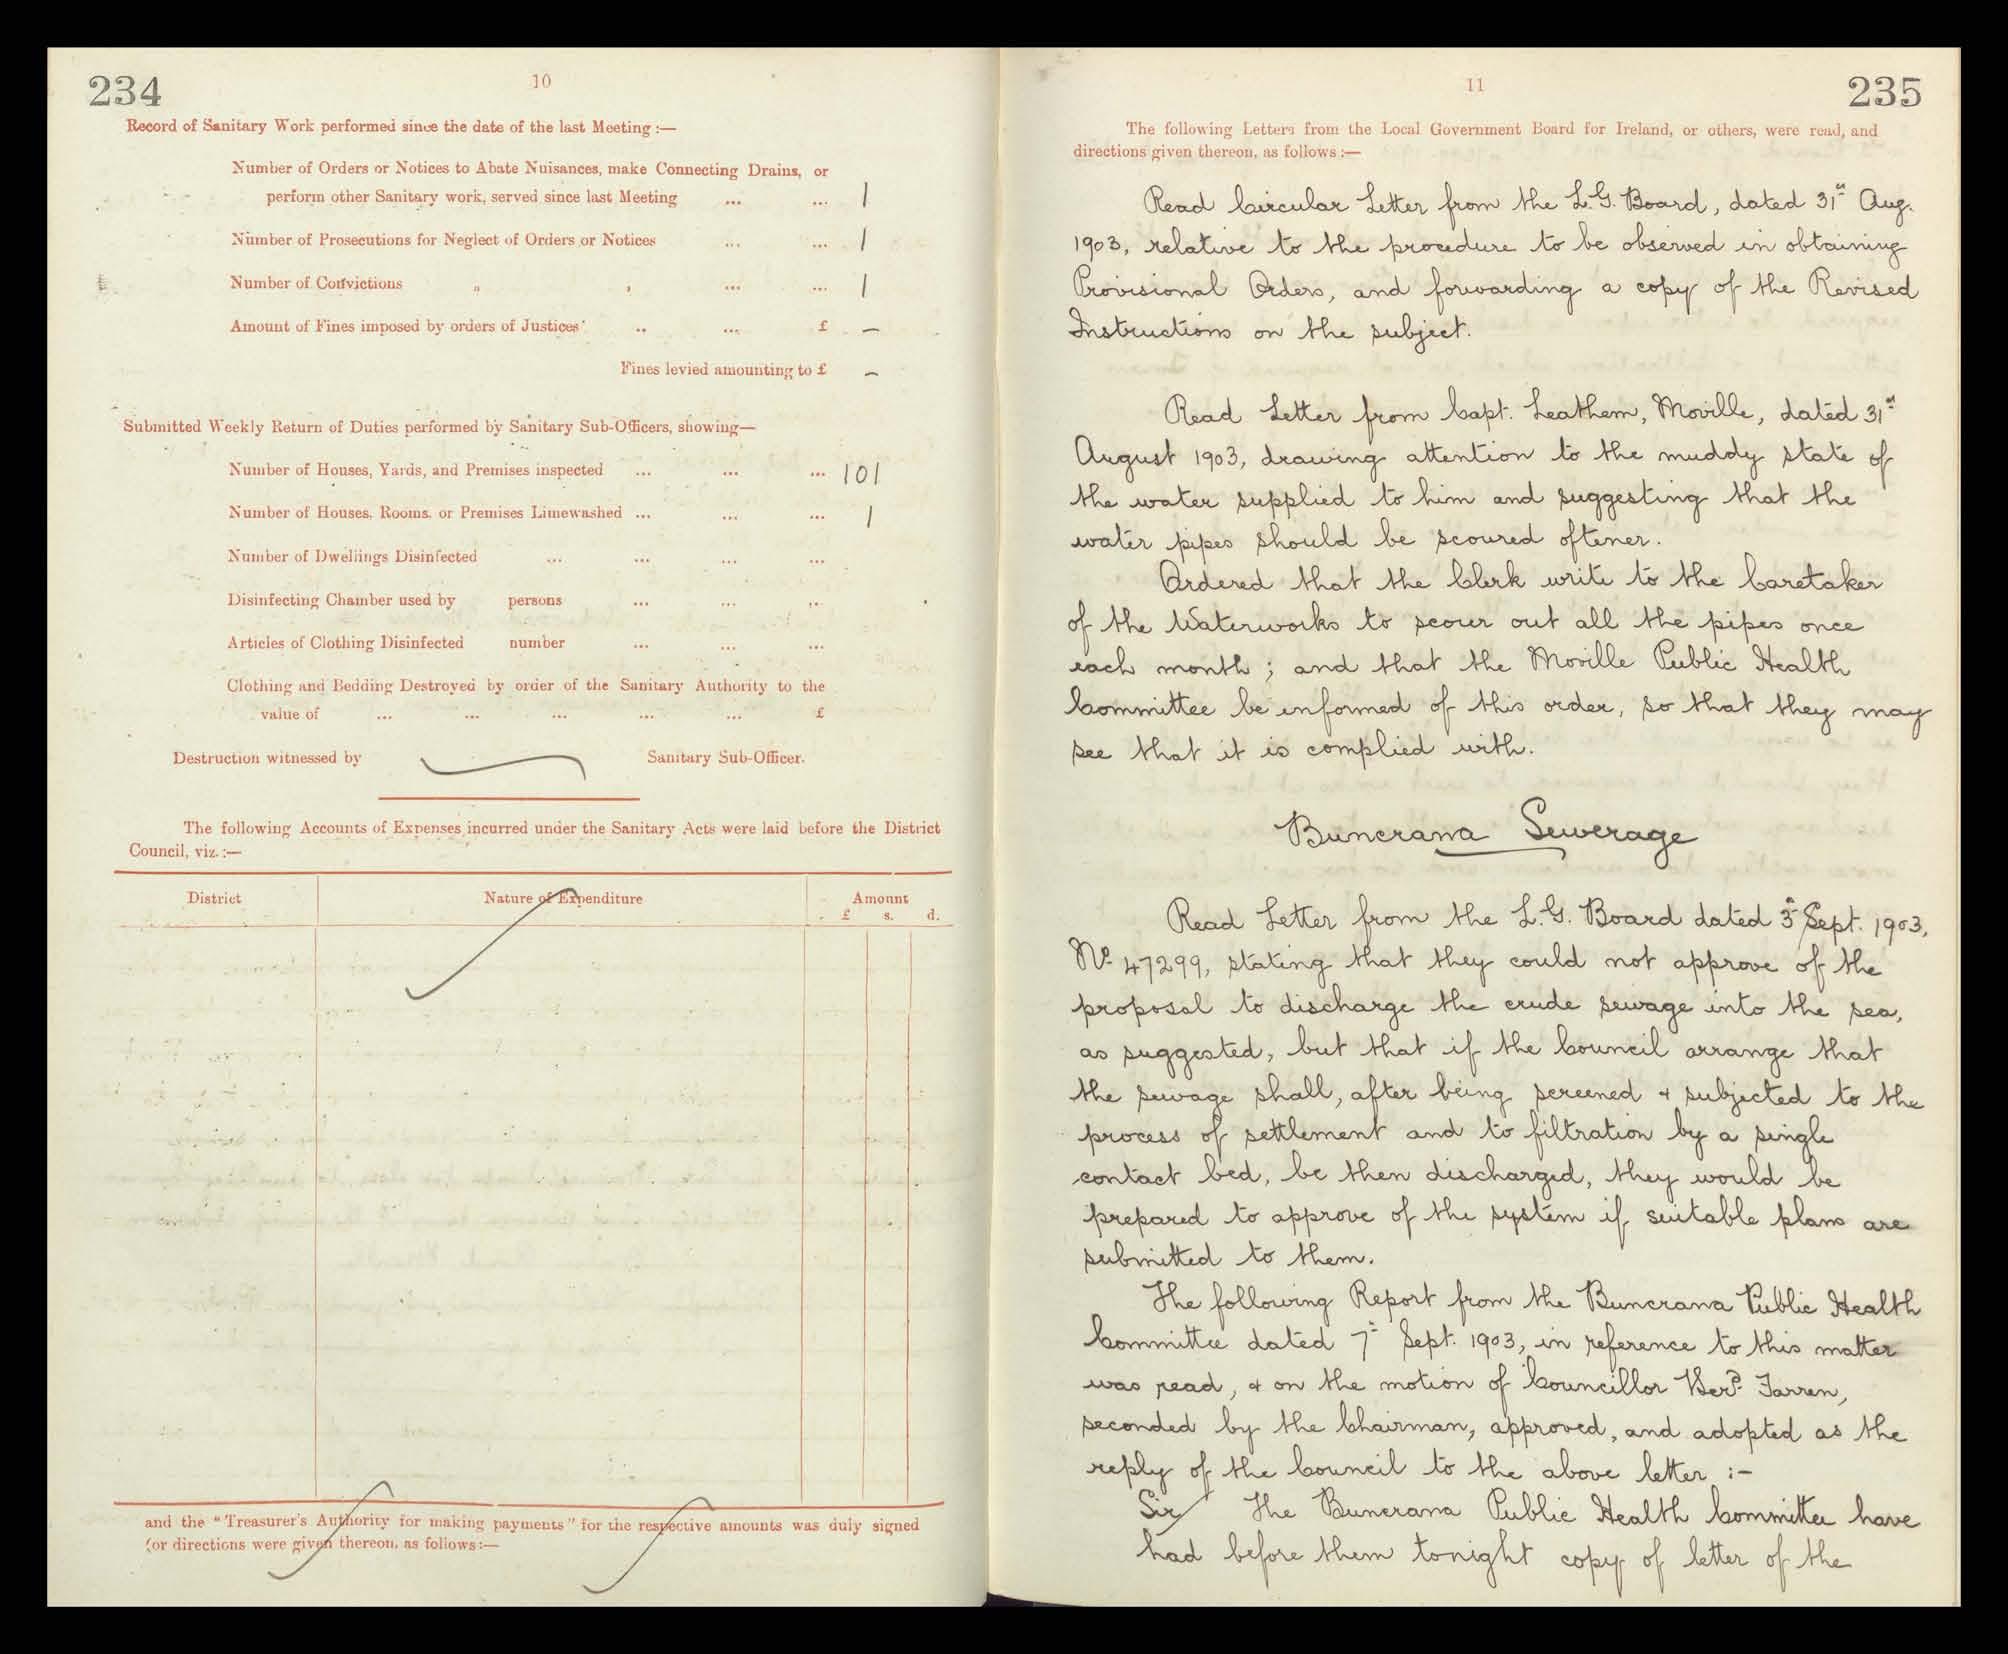 234
10
Record of Sanitary Work performed since the date of the last Meeting :—
Number of Orders or Notices to Abate Nuisances, make Connecting Drains, or
perform other Sanitary work, served since last Meeting ... ... 1
Number of Prosecutions for Neglect of Orders or Notices ... ... 1
Number of Convictions „ , ... ... 1
Amount of Fines imposed by orders of Justices .. ... £ —
Fines levied amounting to £ —
Submitted Weekly Return of Duties performed by Sanitary Sub-Officers, showing—
Number of Houses, Yards, and Premises inspected ... ... ... 101
Number of Houses, Rooms, or Premises Limewashed ... ... ... 1
Number of Dwellings Disinfected ... ... ... ...
Disinfecting Chamber used by persons ... ... ...
Articles of Clothing Disinfected number ... ... ...
Clothing and Bedding Destroyed by order of the Sanitary Authority to the
value of ... ... ... ... ... £
Destruction witnessed by Sanitary Sub-Officer.
The following Accounts of Expenses incurred under the Sanitary Acts were laid before the District
Council, viz. :—
District Nature of Expenditure Amount
£ s. d.
and the "Treasurer's Authority for making payments" for the respective amounts was duly signed
(or directions were given thereon, as follows:—
11
235
The following Letters from the Local Government Board for Ireland, or others, were read, and
directions given thereon, as follows :—
Read Circular Letter from the L.G. Board, dated 31st Aug.
1903, relative to the procedure to be observed in obtaining
Provisional Orders, and forwarding a copy of the Revised
Instructions on the subject.
Read Letter from Capt. Leathem, Moville, dated 31st
August 1903, drawing attention to the muddy state of
the water supplied to him and suggesting that the
water pipes should be scoured oftener.
Ordered that the Clerk write to the Caretaker
of the Waterworks to scour out all the pipes once
each month ; and that the Moville Public Health
Committee be informed of this order, so that they may
see that it is complied with.
Buncrana Sewerage
Read Letter from the L.G. Board dated 3rd Sept. 1903,
No. 47299, stating that they could not approve of the
proposal to discharge the crude sewage into the sea,
as suggested, but that if the Council arrange that
the sewage shall, after being screened & subjected to the
process of settlement and to filtration by a single
contact bed, be then discharged, they would be
prepared to approve of the system if suitable plans are
submitted to them.
The following Report from the Buncrana Public Health
Committee dated 7th Sept. 1903, in reference to this matter
was read, & on the motion of Councillor Berd. Farren,
seconded by the Chairman, approved, and adopted as the
reply of the Council to the above letter :-
Sir/ The Buncrana Public Health Committee have
had before them tonight copy of letter of the